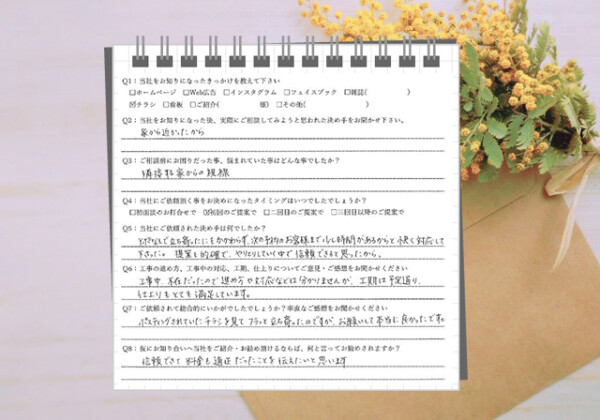 Q1：当社をお知りになったきっかけを教えて下さい
□ホームページ □Web広告 □インスタグラム □フェイスブック □雑誌( )
☑チラシ □看板 □ご紹介( 様) □その他( )
Q2：当社をお知りになった後、実際にご相談してみようと思われた決め手をお聞かせ下さい。
家から近かったから
Q3：ご相談前にお困りだった事、悩まれていた事はどんな事でしたか？
隣接する家からの視線
Q4：当社にご依頼頂く事をお決めになったタイミングはいつでしたでしょうか？
□初面談のお打合せで ☑初回のご提案で □二回目のご提案で □三回目以降のご提案で
Q5：当社にご依頼された決め手は何でしたか？
とびこみで立ち寄ったにもかかわらず、次の予約のお客様まで少し時間があるからと快く対応して
下さった。提案も的確で、やりとりしていく中で信頼できると思ったから。
Q6：工事の進め方、工事中の対応、工期、仕上りについてご意見・ご感想をお聞かせください
工事中、不在だったので進め方や対応などは分かりませんが、工期は予定通り、
仕上りもとても満足しています。
Q7：ご依頼されて総合的にいかがでしたでしょうか？率直なご感想をお聞かせください
ポスティングされていたチラシを見てフラッと立ち寄ったのですが、お願いして本当に良かったです。
Q8：仮にお知り合いへ当社をご紹介・お勧め頂けるならば、何と言ってお勧めされますか？
信頼できて料金も適正だったことを伝えたいと思います